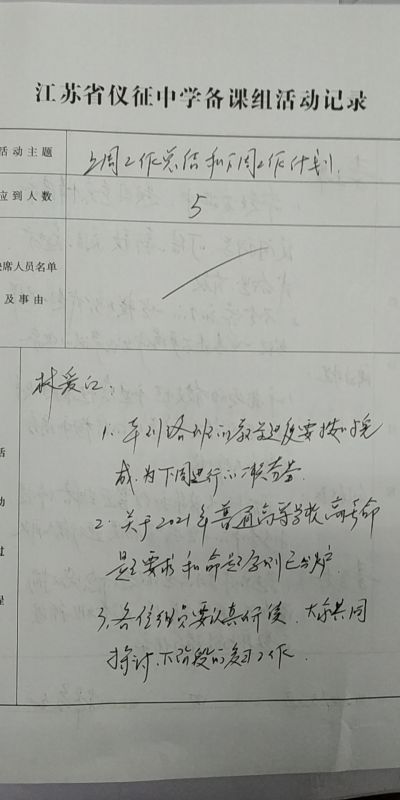 江苏省仪征中学备课组活动记录
活动主题
上周工作总结和下周工作计划.
应到人数
5
缺席人员名单
及事由
活
动
过
程
林爱红:
1. 本周各班的教学进度要按时完
成,为下周进行的联考
2. 关于2021年普通高等学校高考命
题要求和命题原则已出炉.
3. 各位组员要认真研读、大家共同
探讨,下阶段的复习工作.